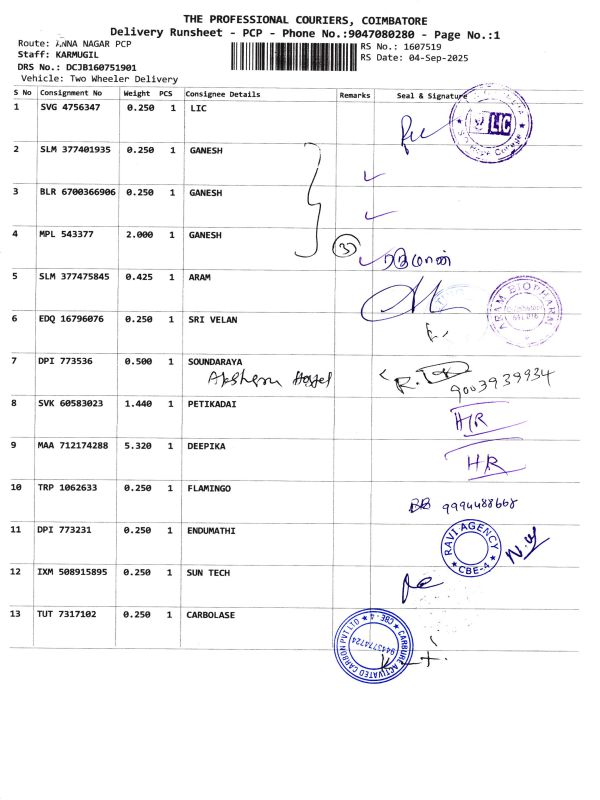 THE PROFESSIONAL COURIERS, COIMBATORE
Delivery Runsheet - PCP - Phone No.:9047080280 - Page No.:1
Route: ANNA NAGAR PCP
RS No.: 1607519
Staff: KARMUGIL
RS Date: 04-Sep-2025
DRS No.: DCJB160751901
Vehicle: Two Wheeler Delivery
S No Consignment No Weight PCS Consignee Details Remarks Seal & Signature
1 SVG 4756347 0.250 1 LIC
LIC
2 SLM 377401935 0.250 1 GANESH
3 BLR 6700366906 0.250 1 GANESH
4 MPL 543377 2.000 1 GANESH
3
5 SLM 377475845 0.425 1 ARAM
ARAM BIOPHARM
6 EDQ 16796076 0.250 1 SRI VELAN
7 DPI 773536 0.500 1 SOUNDARAYA
9003939934
8 SVK 60583023 1.440 1 PETIKADAI
HR
9 MAA 712174288 5.320 1 DEEPIKA
HR
10 TRP 1062633 0.250 1 FLAMINGO
BB 9994488668
11 DPI 773231 0.250 1 ENDUMATHI
RAVI AGENCY
CBE-4
12 IXM 508915895 0.250 1 SUN TECH
13 TUT 7317102 0.250 1 CARBOLASE
CARBURE ACTIVATED CARBON PVT LTD
CBE-4
9443774724